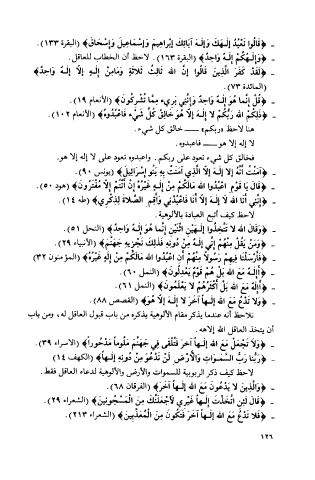 ـ ﴿قَالُوا نَعْبُدُ إِلَـهَكَ وَإِلَـهَ آبَائِكَ إِبْرَاهِيمَ وَإِسْمَاعِيلَ وَإِسْحَاقَ﴾ (البقرة ١٣٣).
ـ ﴿وَإِلَـهُكُمْ إِلَـهٌ وَاحِدٌ﴾ (البقرة ١٦٣). لاحظ أن الخطاب للعاقل.
ـ ﴿لَقَدْ كَفَرَ الَّذِينَ قَالُوا إِنَّ اللهَ ثَالِثُ ثَلَاثَةٍ وَمَا مِنْ إِلَـهٍ إِلَّا إِلَـهٌ وَاحِدٌ﴾
(المائدة ٧٣).
ـ ﴿قُلْ إِنَّمَا هُوَ إِلَـهٌ وَاحِدٌ وَإِنَّنِي بَرِيءٌ مِمَّا تُشْرِكُونَ﴾ (الأنعام ١٩).
ـ ﴿ذَلِكُمُ اللهُ رَبُّكُمْ لا إِلَـهَ إِلَّا هُوَ خَالِقُ كُلِّ شَيْءٍ فَاعْبُدُوهُ﴾ (الأنعام ١٠٢).
هنا لاحظ «ربكم» ــــ خالق كل شيء.
لا إله إلا هو ــــ فاعبدوه.
فخالق كل شيء تعود على ربكم. واعبدوه تعود على لا إله إلا هو.
ـ ﴿آمَنْتُ أَنَّهُ لا إِلَـهَ إِلَّا الَّذِي آمَنَتْ بِهِ بَنُو إِسْرَائِيلَ﴾ (يونس ٩٠).
ـ ﴿قَالَ يَا قَوْمِ اعْبُدُوا اللهَ مَالَكُمْ مِنْ إِلَـهٍ غَيْرُهُ إِنْ أَنْتُمْ إِلَّا مُفْتَرُونَ﴾ (هود ٥٠).
ـ ﴿إِنَّنِي أَنَا اللهُ لا إِلَـهَ إِلَّا أَنَا فَاعْبُدْنِي وَأَقِمِ الصَّلاةَ لِذِكْرِي﴾ (طه ١٤).
لاحظ كيف أتبع العبادة بالألوهية.
ـ ﴿وَقَالَ اللهُ لا تَتَّخِذُوا إِلَـهَيْنِ اثْنَيْنِ إِنَّمَا هُوَ إِلَـهٌ وَاحِدٌ﴾ (النحل ٥١).
ـ ﴿وَمَنْ يَقُلْ مِنْهُمْ إِنِّي إِلَـهٌ مِنْ دُونِهِ فَذَلِكَ نَجْزِيهِ جَهَنَّمَ﴾ (الأنبياء ٢٩).
ـ ﴿فَأَرْسَلْنَا فِيهِمْ رَسُولاً مِنْهُمْ أَنِ اعْبُدُوا اللهَ مَالَكُمْ مِنْ إِلَهٍ غَيْرُهُ﴾ (المؤمنون ٣٢)
ـ ﴿أَإِلَـهٌ مَعَ اللهِ بَلْ هُمْ قَوْمٌ يَعْدِلُونَ﴾ (النمل ٦٠).
ـ ﴿أَإِلَـهٌ مَعَ اللهِ بَلْ أَكْثَرُهُمْ لا يَعْلَمُونَ﴾ (النمل ٦١).
ـ ﴿وَلا تَدْعُ مَعَ اللهِ إِلَـهاً آخَرَ لا إِلَـهَ إِلَّا هُوَ﴾ (القصص ٨٨).
نلاحظ أنه عندما يذكر مقام الألوهية يذكره من باب قبول العاقل له، ومن باب
أن يتخذ العاقل الله إلاهه.
ـ ﴿وَلا تَجْعَلْ مَعَ اللهِ إِلَـهاً آخَرَ فَتُلْقَى فِي جَهَنَّمَ مَلُوماً مَدْحُوراً﴾ (الاسراء ٣٩).
ـ ﴿رَبُّنَا رَبُّ السَّمَوَاتِ وَالأَرْضِ لَنْ نَدْعُوَ مِنْ دُونِهِ إِلَـهاً﴾ (الكهف ١٤)
لاحظ كيف ذكر الربوبية للسموات والأرض والألوهية لدعاء العاقل فقط.
ـ ﴿وَالَّذِينَ لا يَدْعُونَ مَعَ اللهِ إِلَـهاً آخَرَ﴾ (الفرقان ٦٨).
ـ ﴿قَالَ لَئِنِ اتَّخَذْتَ إِلَـهاً غَيْرِي لأَجْعَلَنَّكَ مِنَ الْمَسْجُونِينَ﴾ (الشعراء ٢٩).
ـ ﴿فَلا تَدْعُ مَعَ اللهِ إِلَـهاً آخَرَ فَتَكُونَ مِنَ الْمُعَذَّبِينَ﴾ (الشعراء ٢١٣).
١٢٦